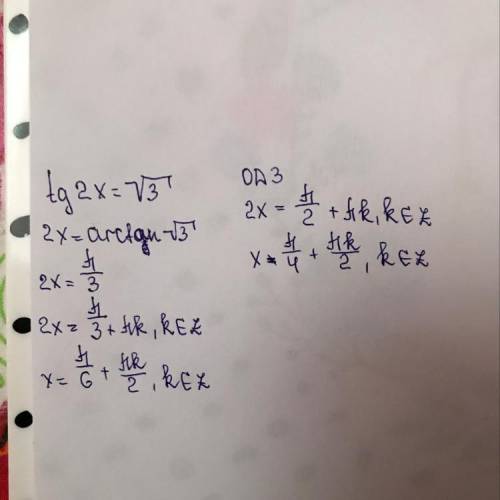 tg 2x = √3
2x = arctgn √3
2x = π/3
2x = π/3 + πk, k∈Z
x = π/6 + πk/2, k∈Z
ОДЗ
2x = π/2 + πk, k∈Z
x = π/4 + πk/2, k∈Z